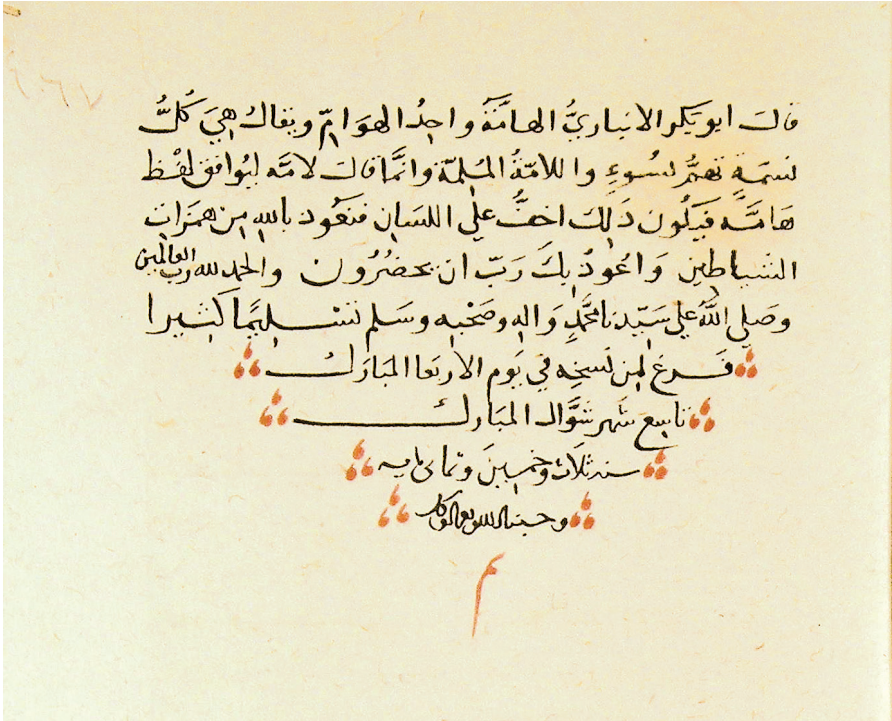 قالَ ابو بَكر الانباريُّ الهامَّةُ واحِدُ الهوَامّ ويقالُ هِيَ كُلُّ
نسَمَةٍ تهمُّ بسُوءٍ واللامّةُ المُلِمّة وانَّما قالَ لامّه ليُوافق لفْظ
هَامَّه فيَكُون ذَلِكَ اخفُّ عَلي اللسَانِ فنعُوذ باللهِ مِن همَزَاتِ
الشيَاطِين وَاعُوذُ بِكَ رَبّ ان يحضُرُون والحمد لله رَب العالمين
وصَلي اللَّهُ عَلي سَيّدنا محمَّدٍ وَالِهِ وصَحْبِه وسَلم تسْلِيمًا كَثيرا
فَرغ مِن نَسخِه في يَوم الاربَعا المبَارَك
تاسِع شَهر شوَّال المبَارك
سنه ثلَاث وخمسِينَ وثماى مايه
وحسبنا الله ونعم الوكيل
م